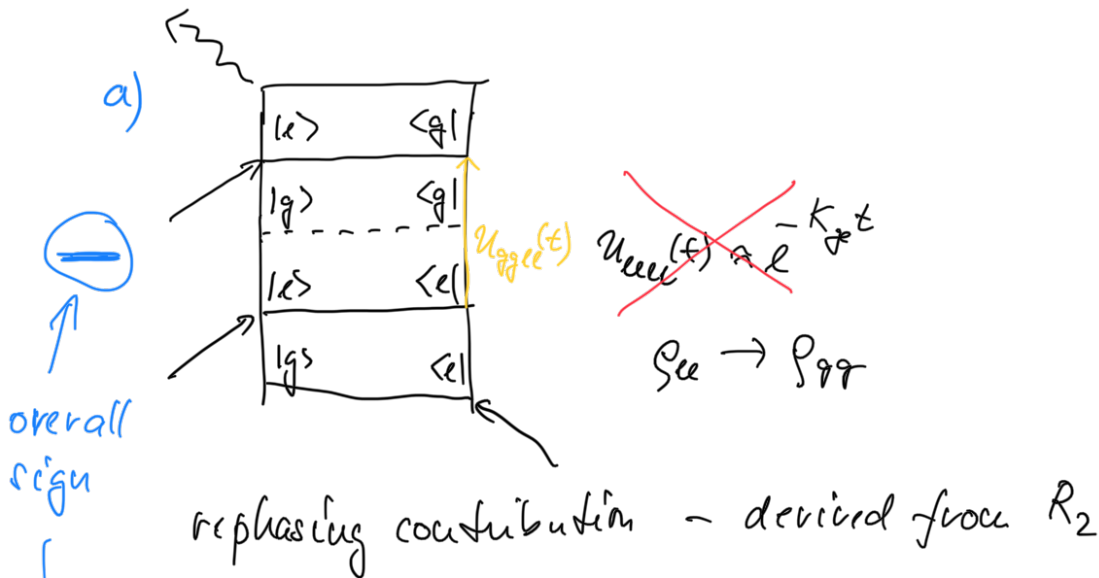 a)
|e> <g|
|g> <g|
U_ggee(t)
U_eeee(t) ≈ e^-K_ge t
|e> <e|
ρ_ee → ρ_gg
|g> <e|
overall
sign
rephasing contribution - derived from R_2